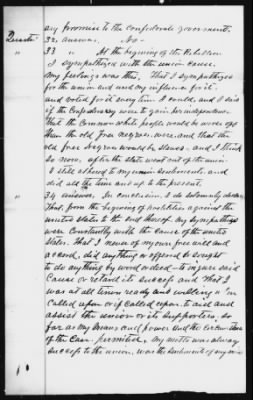 any promise to the Confederate government.
32, answer, No
33 " At the beginning of the Rebellion
I sympathized with the union cause.
My feelings was this, That I sympathized
for the union and used my influence for it.
and voted for it every time I could, and I said
if the Confederacy were to gain her independence,
that the Common white people would be worse off
than the old free negroes were, and that the
old free negroes would be slaves, and I think
so now, after the state went out of the union.
I still adhered to my union sentiments, and
did all the time and up to the present.
" 34 answer, In conclusion, I do solemnly declare
That, from the beginning of hostilities against the
united states to the end thereof, my sympathies
were Constantly with the cause of the united
states. That I never of my own free will and
accord, did anything or offered or sought
to do anything by word or deed to injure said
Cause or retard its success and that I
was at all times ready and willing when
Called upon or if called upon to aid and
assist the union or its supporters, so
far as my means and power and the
of the Case permitted. My motto was always
success to the union, was the sentiment of my